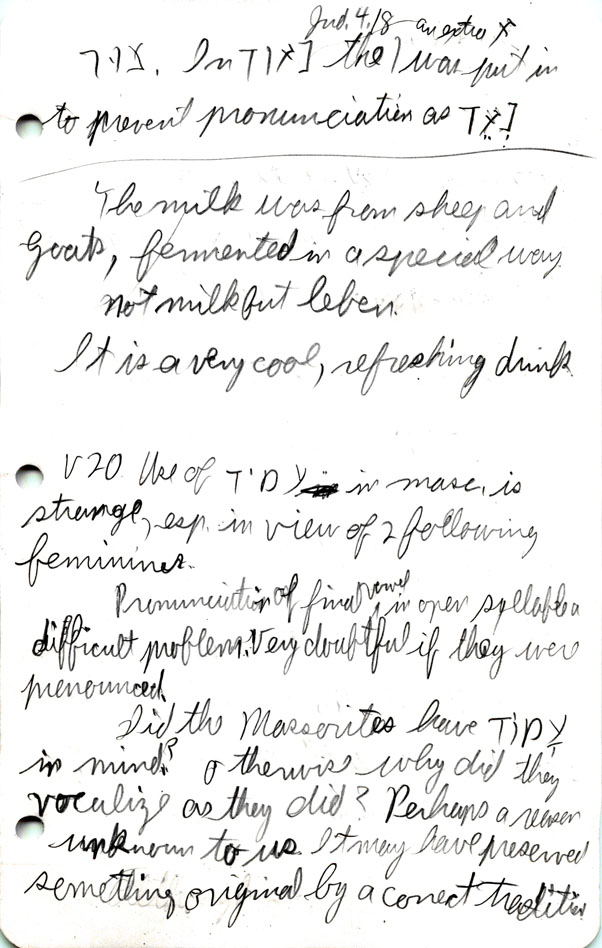 Jud. 4.18 an extra א
. In נאוד the ו was put in
to prevent pronunciation as נאד
The milk was from sheep and
goats, fermented in a special way
not milk but leben.
It is a very cool, refreshing drink
V 20 Use of עמד in masc. is
strange, esp. in view of 2 following
feminines.
Pronunciation of final vowel in open syllable a
difficult problem. Very doubtful if they were
pronounced.
Did the Massorites have עמד
in mind? otherwise why did they
vocalize as they did? Perhaps a reason
unknown to us. It may have preserved
something original by a correct tradition